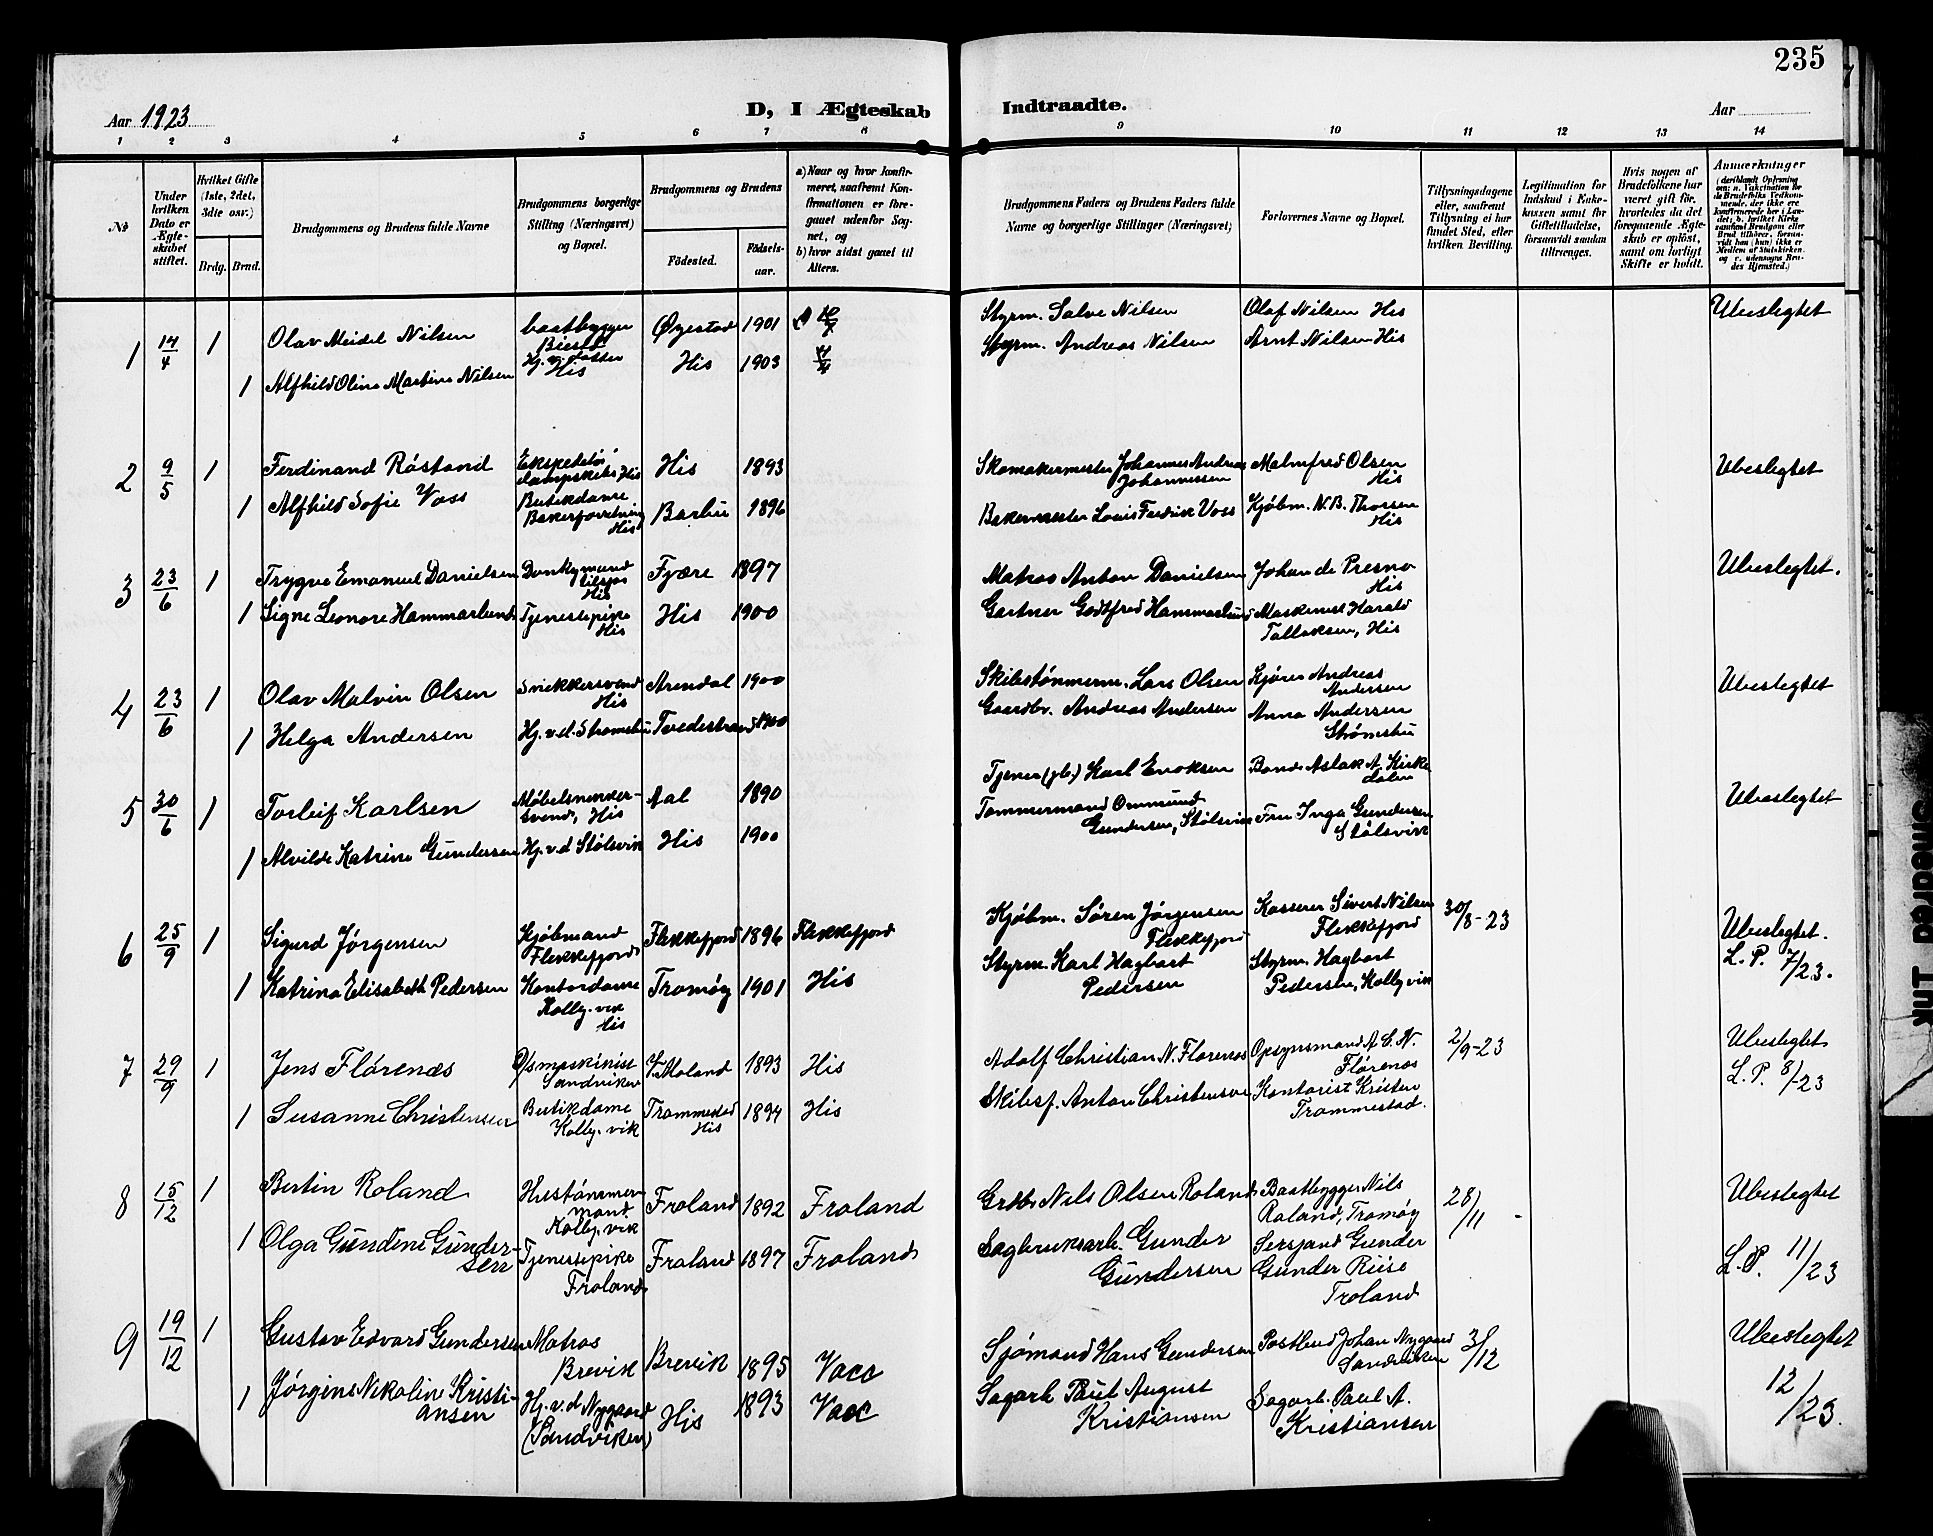 235
Aar 1923
D, I Ægteskab Indtraadte.
Aar
1 2 3 4 5 6 7 8 9 10 11 12 13 14
№
Under hvilken Dato er Ægteskabet stiftet.
Hvilket Gifte (1ste, 2det, 3die osv.)
Brdg. Brud.
Brudgommens og Brudens fulde Navne
Brudgommens borgerlige Stilling (Næringsvei) og Bopæl.
Brudgommens og Brudens
Födested.
Födselsaar.
a) Naar og hvor konfirmeret, saafremt Konfirmationen er foregaaet udenfor Sognet, og
b) hvor sidst gaaet til Alters.
Brudgommens Faders og Brudens Faders fulde Navne og borgerlige Stillinger (Næringsvei)
Forlovernes Navne og Bopæl.
Tillysningsdagene eller, saafremt Tillysning ei har fundet Sted, efter hvilken Bevilling.
Legitimation for Indskud i Enkekassen samt for Giftetilladelse, forsaavidt saadan tiltrænges.
Hvis nogen af Brudefolkene har været gift før, hvorledes da det foregaaende Ægteskab er oplöst, samt om lovligt Skifte er holdt.
Anmerkninger
1 14/4 1 Olav Meidel Nilsen baatbygger Øyestad 1901 Styrm. Salve Nilsen Olaf Nilsen His Ubeslegtet
1 Alfhild Oline Martine Nilsen Hj. v. Fatter His His 1903 Styrm. Andreas Nilsen Arnt Nilsen His
2 9/5 1 Ferdinand Róstand Ekspeditór dampskibs His His 1893 Skomakermester Johannes Andreas Johannessen Malmfred Olsen His Ubeslegtet
1 Alfhild Sofie Voss Butikdame Bakerforretning His Barbu 1896 Bakermester Louis Fredrik Voss Kjøbm. N. B. Thorsen His
3 23/6 1 Trygve Emanuel Danielsen Donkymand tilsjøs His Fjære 1897 Matros Anton Danielsen Johan de Presno His Ubeslegtet.
1 Signe Leonore Hammarlund Tjenestepike His His 1900 Gartner Godtfred Hammarlund Maskinist Harald Tallaksen, His
4 23/6 1 Olav Malvin Olsen Snekkersvend His Arendal 1900 Skibstømmerm. Lars Olsen Kjøren Andreas Andersen Ubeslegtet
1 Helga Andersen Hj. v. d. Strømsbu Tvedestrand 1900 Gaardbr. Andreas Andersen Anna Andersen Strømsbu
5 30/6 1 Torleif Karlsen Møbelsnekkersvend, His Aal 1890 Tjener (gb.) Karl Enoksen Bonde Aslak A. Kirkedalen Ubeslegtet
1 Alvilde Katrine Gundersen Hj. v. d Stølsvik His 1900 Tømmermand Ommund Gundersen, Stølsvik Fru Inga Gundersen Stølsvik
6 25/9 1 Sigurd Jørgensen Kjøbmand Flekkefjord Flekkefjord 1896 Flekkefjord Kjøbm. Søren Jørgensen Flekkefjord Kasserer Sivert Nilsen Flekkefjord 30/8-23 Ubeslegtet.
1 Katrine Elisabeth Pedersen Kontordame Kolby.vik His Tromøy 1901 His Styrm. Karl Hagbart Pedersen Styrm. Hagbart Pedersen, Kolby.vik L. P. 7/23.
7 29/9 1 Jens Flórenæs D/smaskinist Sandviken V. Moland 1893 His Adolf Christian N. Florenæs Opsynsmand A. C. N. Flórenæs 2/9-23 Ubeslegtet
1 Susanne Christensen Butikdame Kolby.vik Trommestad His 1894 His Skibsf. Anton Christensen Kontorist Kristen Trommestad. L. P. 8/-23
8 15/12 1 Bertin Roland Hustømmermand Kolby.vik Froland 1892 Froland Grdbr. Nils Olsen Roland Baatbygger Nils Roland, Tromøy 28/11 Ubeslegtet
1 Olga Gundine Gundersen Tjenestepike Froland Froland 1897 Froland Sagbruksarb. Gunder Gundersen Sersjand Gunder Gunder Riise Froland L. P. 11/23
9 19/12 1 Gustav Edvard Gundersen Matros Brevik Brevik 1895 Vacc Sjømand Hans Gundersen Postbud Johan Nygaard Sandviken 3/12 Ubeslegtet
1 Jørgine Nikoline Kristiansen Hj. v. d Nygaard (Sandviken) His 1893 Vacc Sagarb. Paul August Kristiansen Sagarb. Paul A. Kristiansen 12/23.